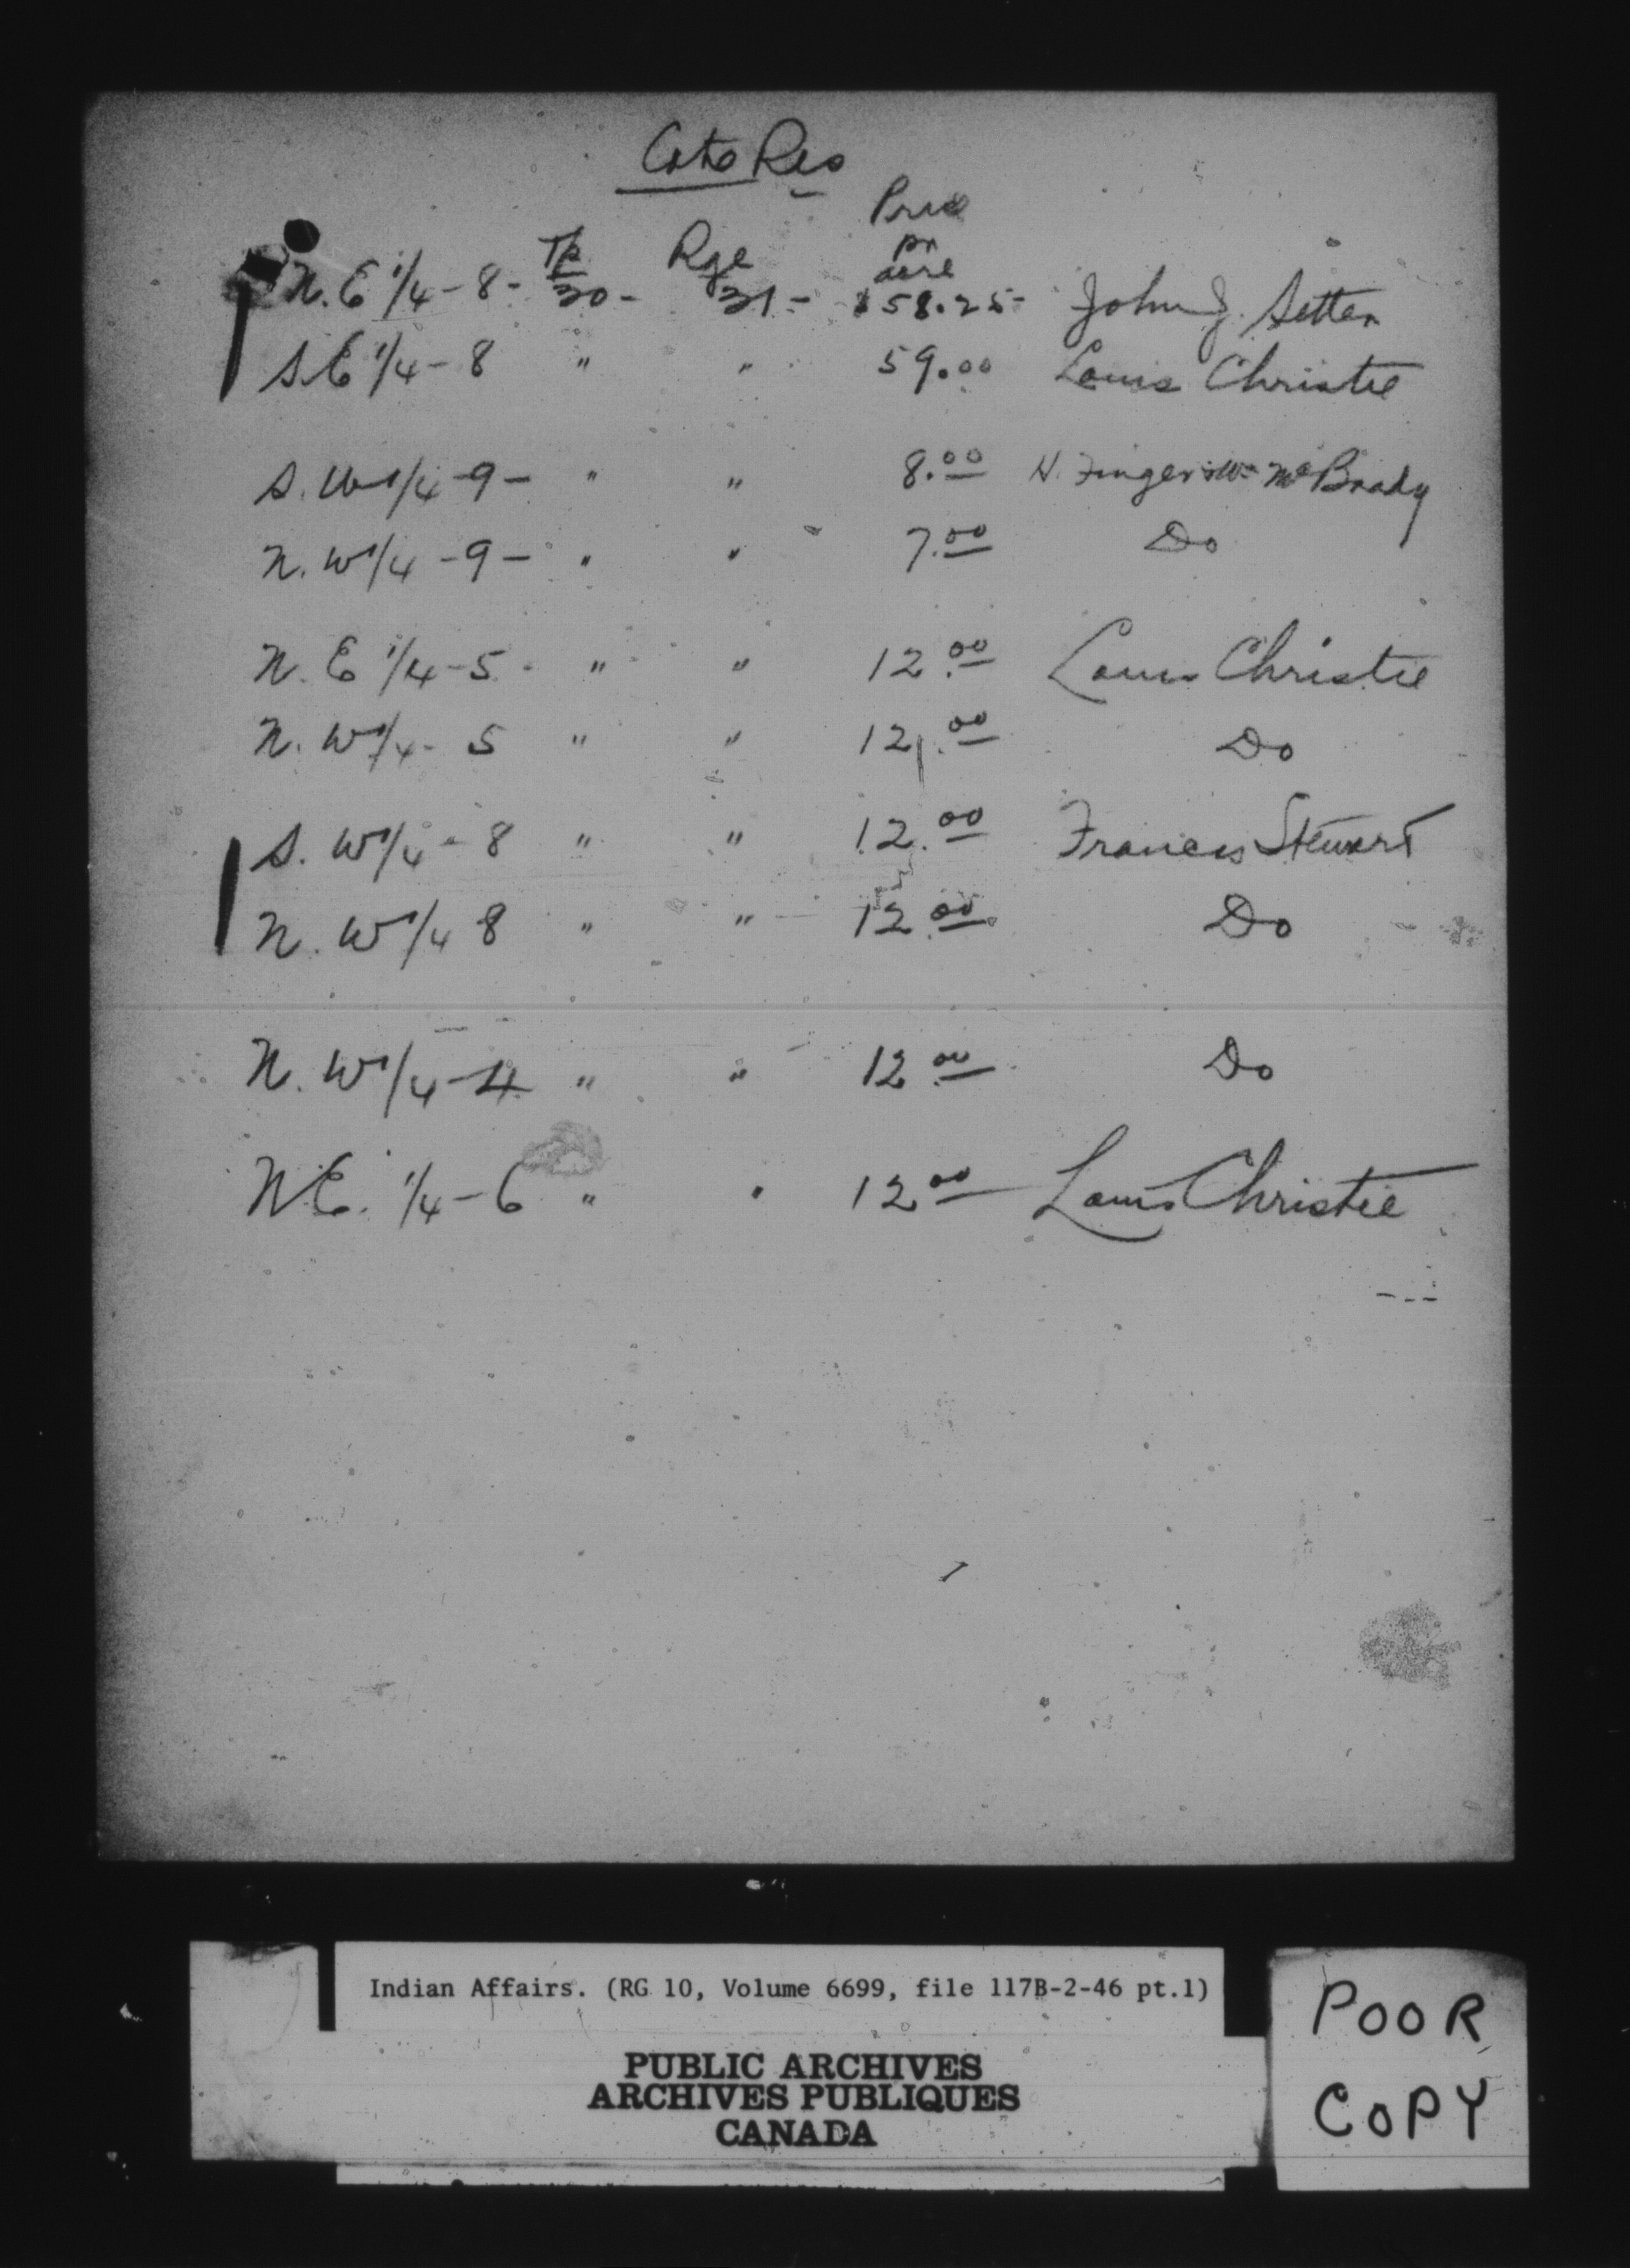 Cote Res
Price
Tp Rge pr
acre
N. E 1/4 - 8 - 30 - 31 - $58.25 - John J. Setter
S. E 1/4 - 8 " " 59.00 Louis Christie
S. W 1/4 - 9 - " " 8.00 H. Finger & Wm McBrady
N. W 1/4 - 9 - " " 7.00 Do
N. E 1/4 - 5 - " " 12.00 Louis Christie
N. W 1/4 - 5 " " 12.00 Do
S. W 1/4 - 8 " " 12.00 Francis Stewart
N. W 1/4 8 " " 12.00 Do
N. W 1/4 - 4 " " 12.00 Do
N.E. 1/4 - 6 " " 12.00 Louis Christie
Indian Affairs. (RG 10, Volume 6699, file 117B-2-46 pt.1)
PUBLIC ARCHIVES
ARCHIVES PUBLIQUES
CANADA
POOR
COPY